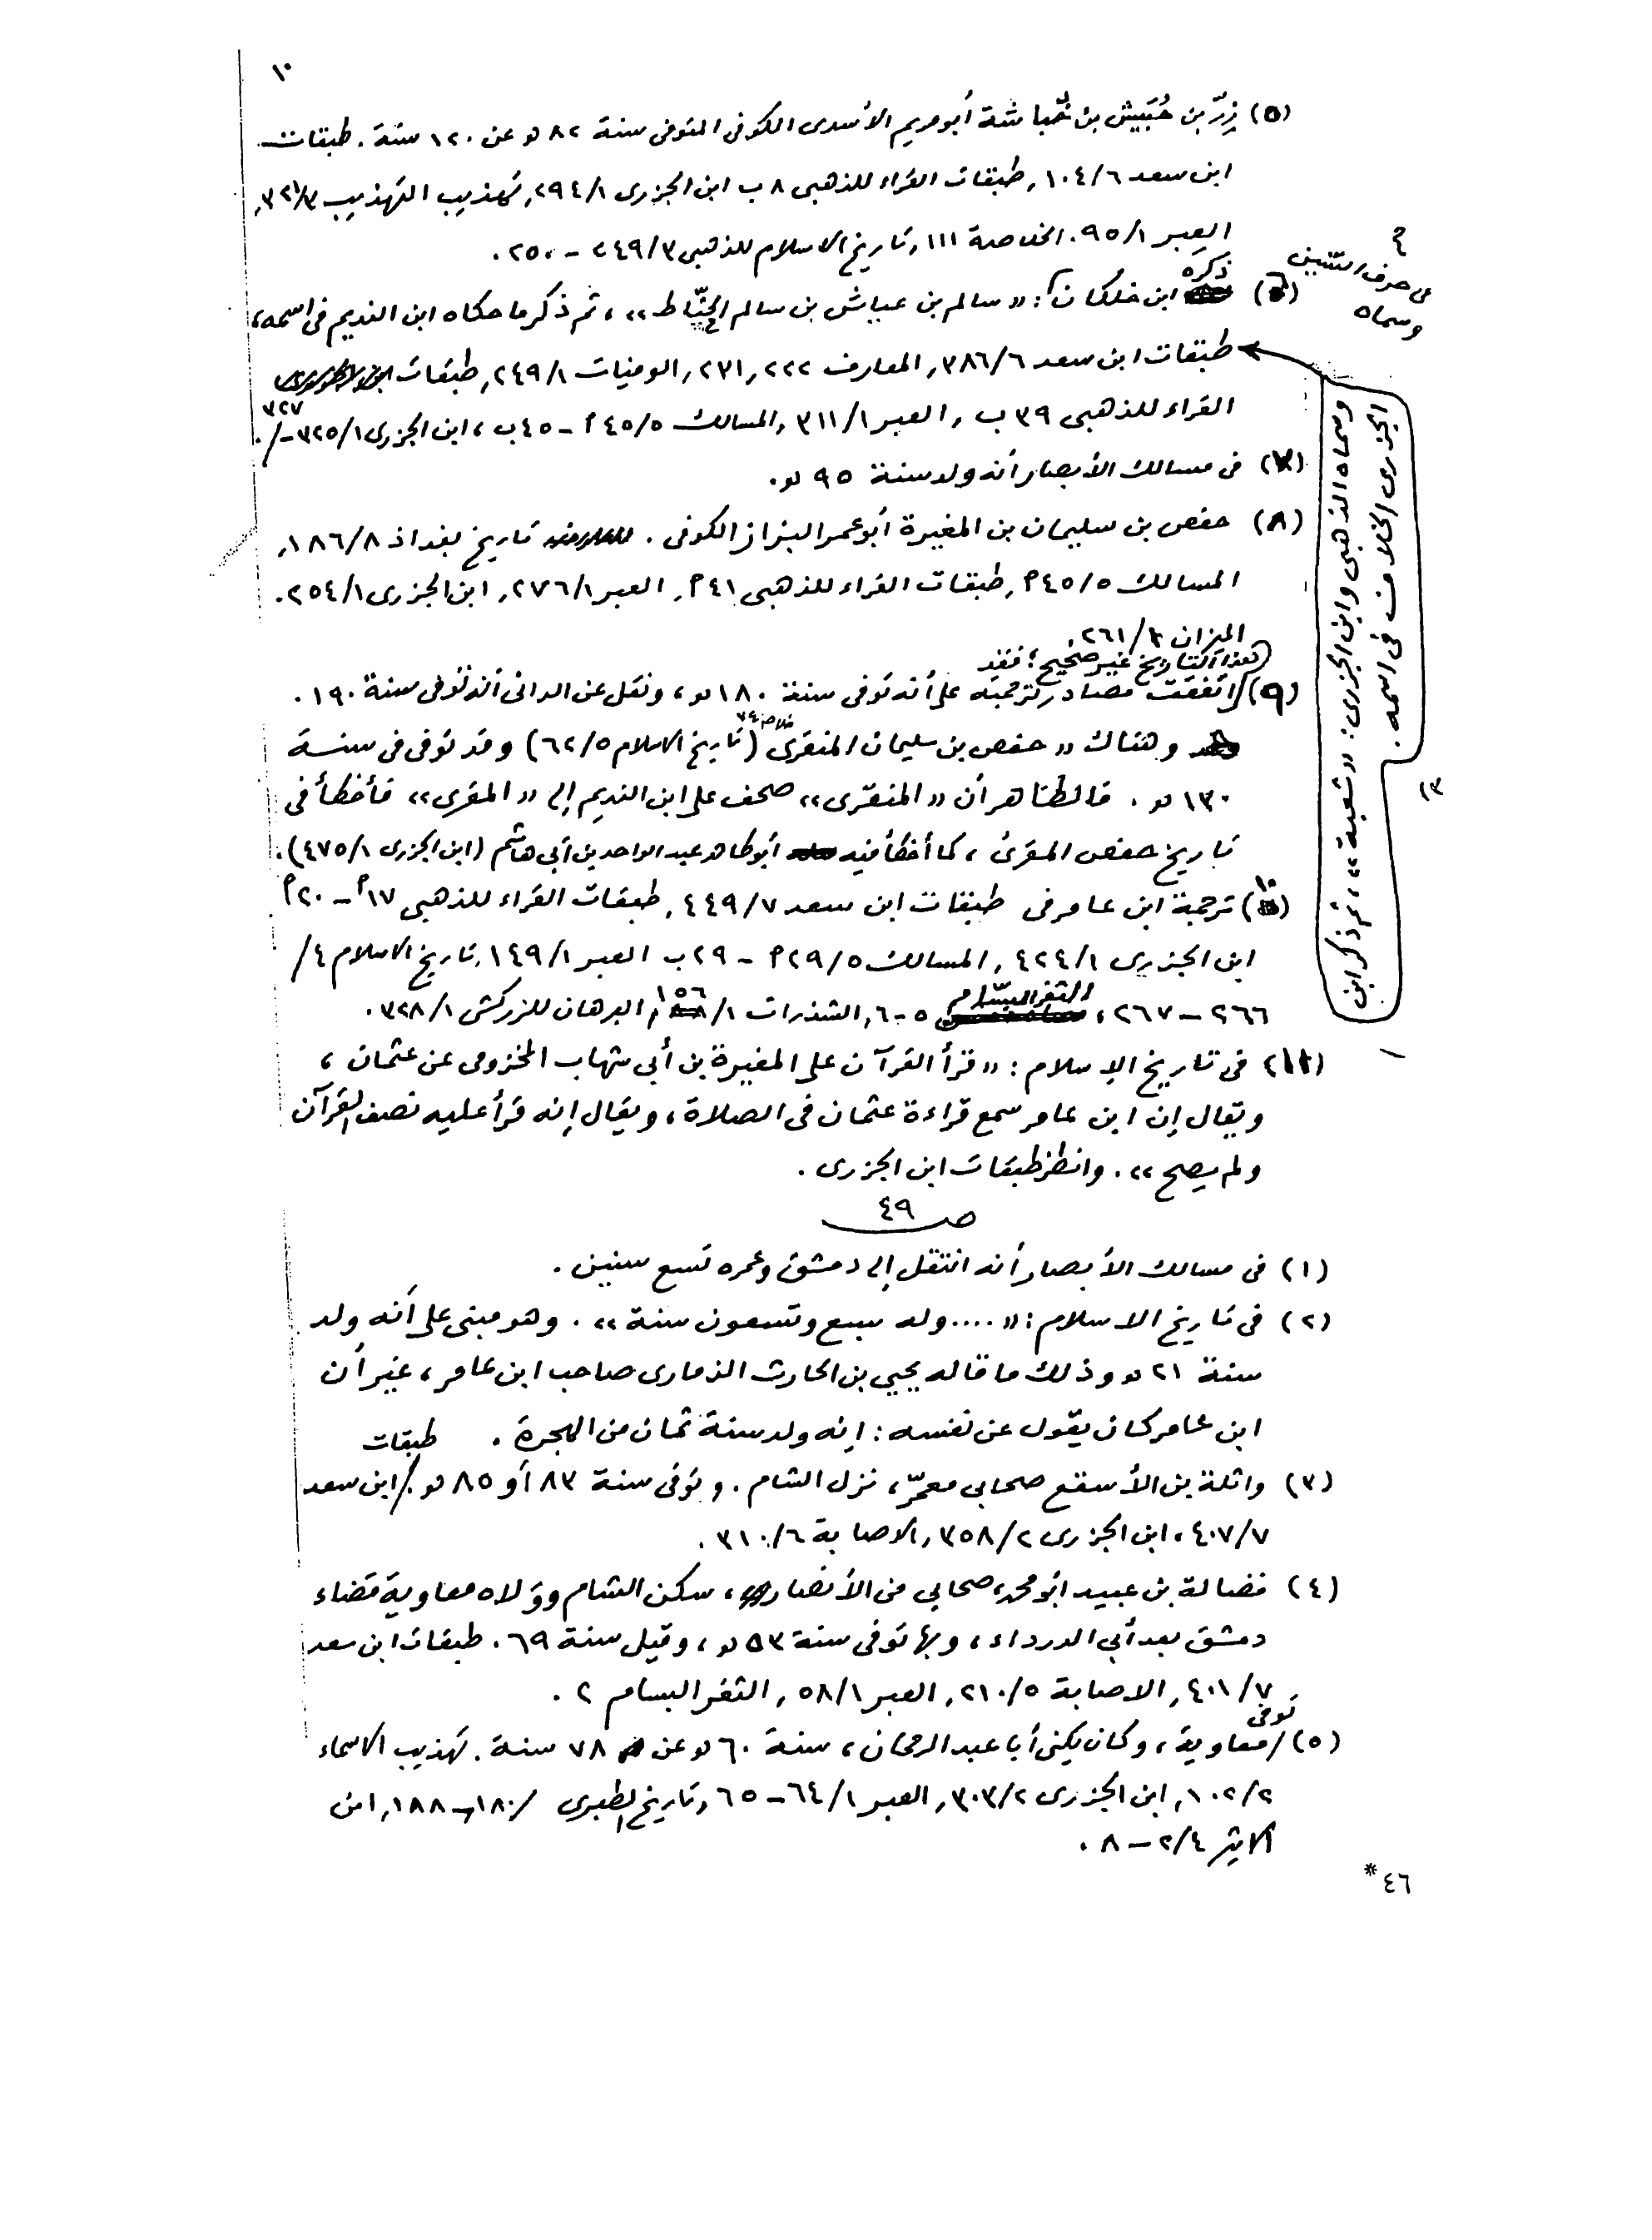 ١٠
(٥) زِرّ بن حُبَيش بن حُباشة أبو مريم الأسدى الكوفى المتوفى سنة ٨٢ هـ عن ١٢٠ سنة . طبقات
ابن سعد ١٠٤/٦ , طبقات القراء للذهبى ٨ ب ابن الجزرى ٢٩٤/١ , تهذيب التهذيب ٣٢١/٣ ,
العبر ٩٥/١ . الخلاصة ١١١ , تاريخ الاسلام للذهبى ٢٤٩/٣ – ٢٥٠ .
(٦) ذكره ابن خلكان فى حرف السين وسماه : « سالم بن عياش بن سالم الحنّاط » ، ثم ذكر ما حكاه ابن النديم فى اسمه ،
وسماه الذهبى وابن الجزرى : « شعبة » ، ثم ذكر ابن
الجزرى الخلاف فى اسمه .
طبقات ابن سعد ٣٨٦/٦ , المعارف ٢٢٢ , ٢٣١ , الوفيات ٢٤٩/١ , طبقات
القراء للذهبى ٣٩ ب , العبر ٣١١/١ , المسالك ٤٥/٥ أ – ٤٥ ب ، ابن الجزرى ٣٢٥/١ – ٣٢٧ .
(٧) فى مسالك الأبصار أنه ولد سنة ٩٥ هـ .
(٨) حفص بن سليمان بن المغيرة أبو عمر البزاز الكوفى . تاريخ بغداد ١٨٦/٨ ,
المسالك ٤٥/٥ أ , طبقات القراء للذهبى ٤١ أ , العبر ٢٧٦/١ , ابن الجزرى ٢٥٤/١ .
الميزان ٢٦١/٢ .
(٩) هذا التاريخ غير صحيح ؛ فقد اتفقت مصادر ترجمته على أنه توفى سنة ١٨٠ هـ ، ونقل عن الدانى أنه توفى سنة ١٩٠ .
وهناك « حفص بن سليمان المنقرى (تاريخ الاسلام ٦٢/٥ خلاصة ٧٤) وقد توفى فى سنة
١٣٠ هـ . فالظاهر أن « المنقرى » صحف على ابن النديم إلى « المقرى » فأخطأ فى
تاريخ حفص المقرئ ، كما أخطأ فيه أبو طاهر عبد الواحد بن أبى هاشم (ابن الجزرى ٤٧٥/١) .
(١٠) ترجمة ابن عامر فى طبقات ابن سعد ٤٤٩/٧ , طبقات القراء للذهبى ١٧ أ – ٢٠ أ
ابن الجزرى ٤٢٤/١ , المسالك ٢٩/٥ أ – ٢٩ ب العبر ١٤٩/١ , تاريخ الاسلام ٤/
٢٦٦ – ٢٦٧ ، الثغر البسّام ٥-٦ , الشذرات ١٥٦/١ , البرهان للزركشى ٣٢٨/١ .
(١١) فى تاريخ الإسلام : « قرأ القرآن على المغيرة بن أبى شهاب المخزومى عن عثمان ،
ويقال إن ابن عامر سمع قراءة عثمان فى الصلاة ، ويقال إنه قرأ عليه نصف القرآن
ولم يصح » . وانظر طبقات ابن الجزرى .
صـ ٤٩
(١) فى مسالك الأبصار أنه انتقل إلى دمشق وعمره تسع سنين .
(٢) فى تاريخ الاسلام : « .... وله سبع وتسعون سنة » . وهو مبنى على أنه ولد
سنة ٢١ هـ وذلك ما قاله يحيى بن الحارث الذمارى صاحب ابن عامر ، غير أن
ابن عامر كان يقول عن نفسه : إنه ولد سنة ثمان من الهجرة .
(٣) واثلة بن الأسقع صحابى معمّر ، نزل الشام . وتوفى سنة ٨٣ أو ٨٥ هـ . طبقات ابن سعد
٤٠٧/٧ ، ابن الجزرى ٣٥٨/٢ , الاصابة ٣١٠/٦ .
(٤) فضالة بن عبيد أبو محمد ، صحابى من الأنصار ، سكن الشام وولاه معاوية قضاء
دمشق بعد أبى الدرداء ، وبها توفى سنة ٥٣ هـ ، وقيل سنة ٦٩ . طبقات ابن سعد
٤٠١/٧ , الاصابة ٢١٠/٥ , العبر ٥٨/١ , الثغر البسام ٢ .
(٥) توفى معاوية ، وكان يكنى أبا عبد الرحمان ، سنة ٦٠ هـ عن ٧٨ سنة . تهذيب الاسماء
١٠٢/٢ , ابن الجزرى ٣٠٣/٢ , العبر ٦٤/١ – ٦٥ , تاريخ الطبرى / ١٨٠ – ١٨٨ , ابن
الاثير ٢/٤ – ٨ .
٤٦ *